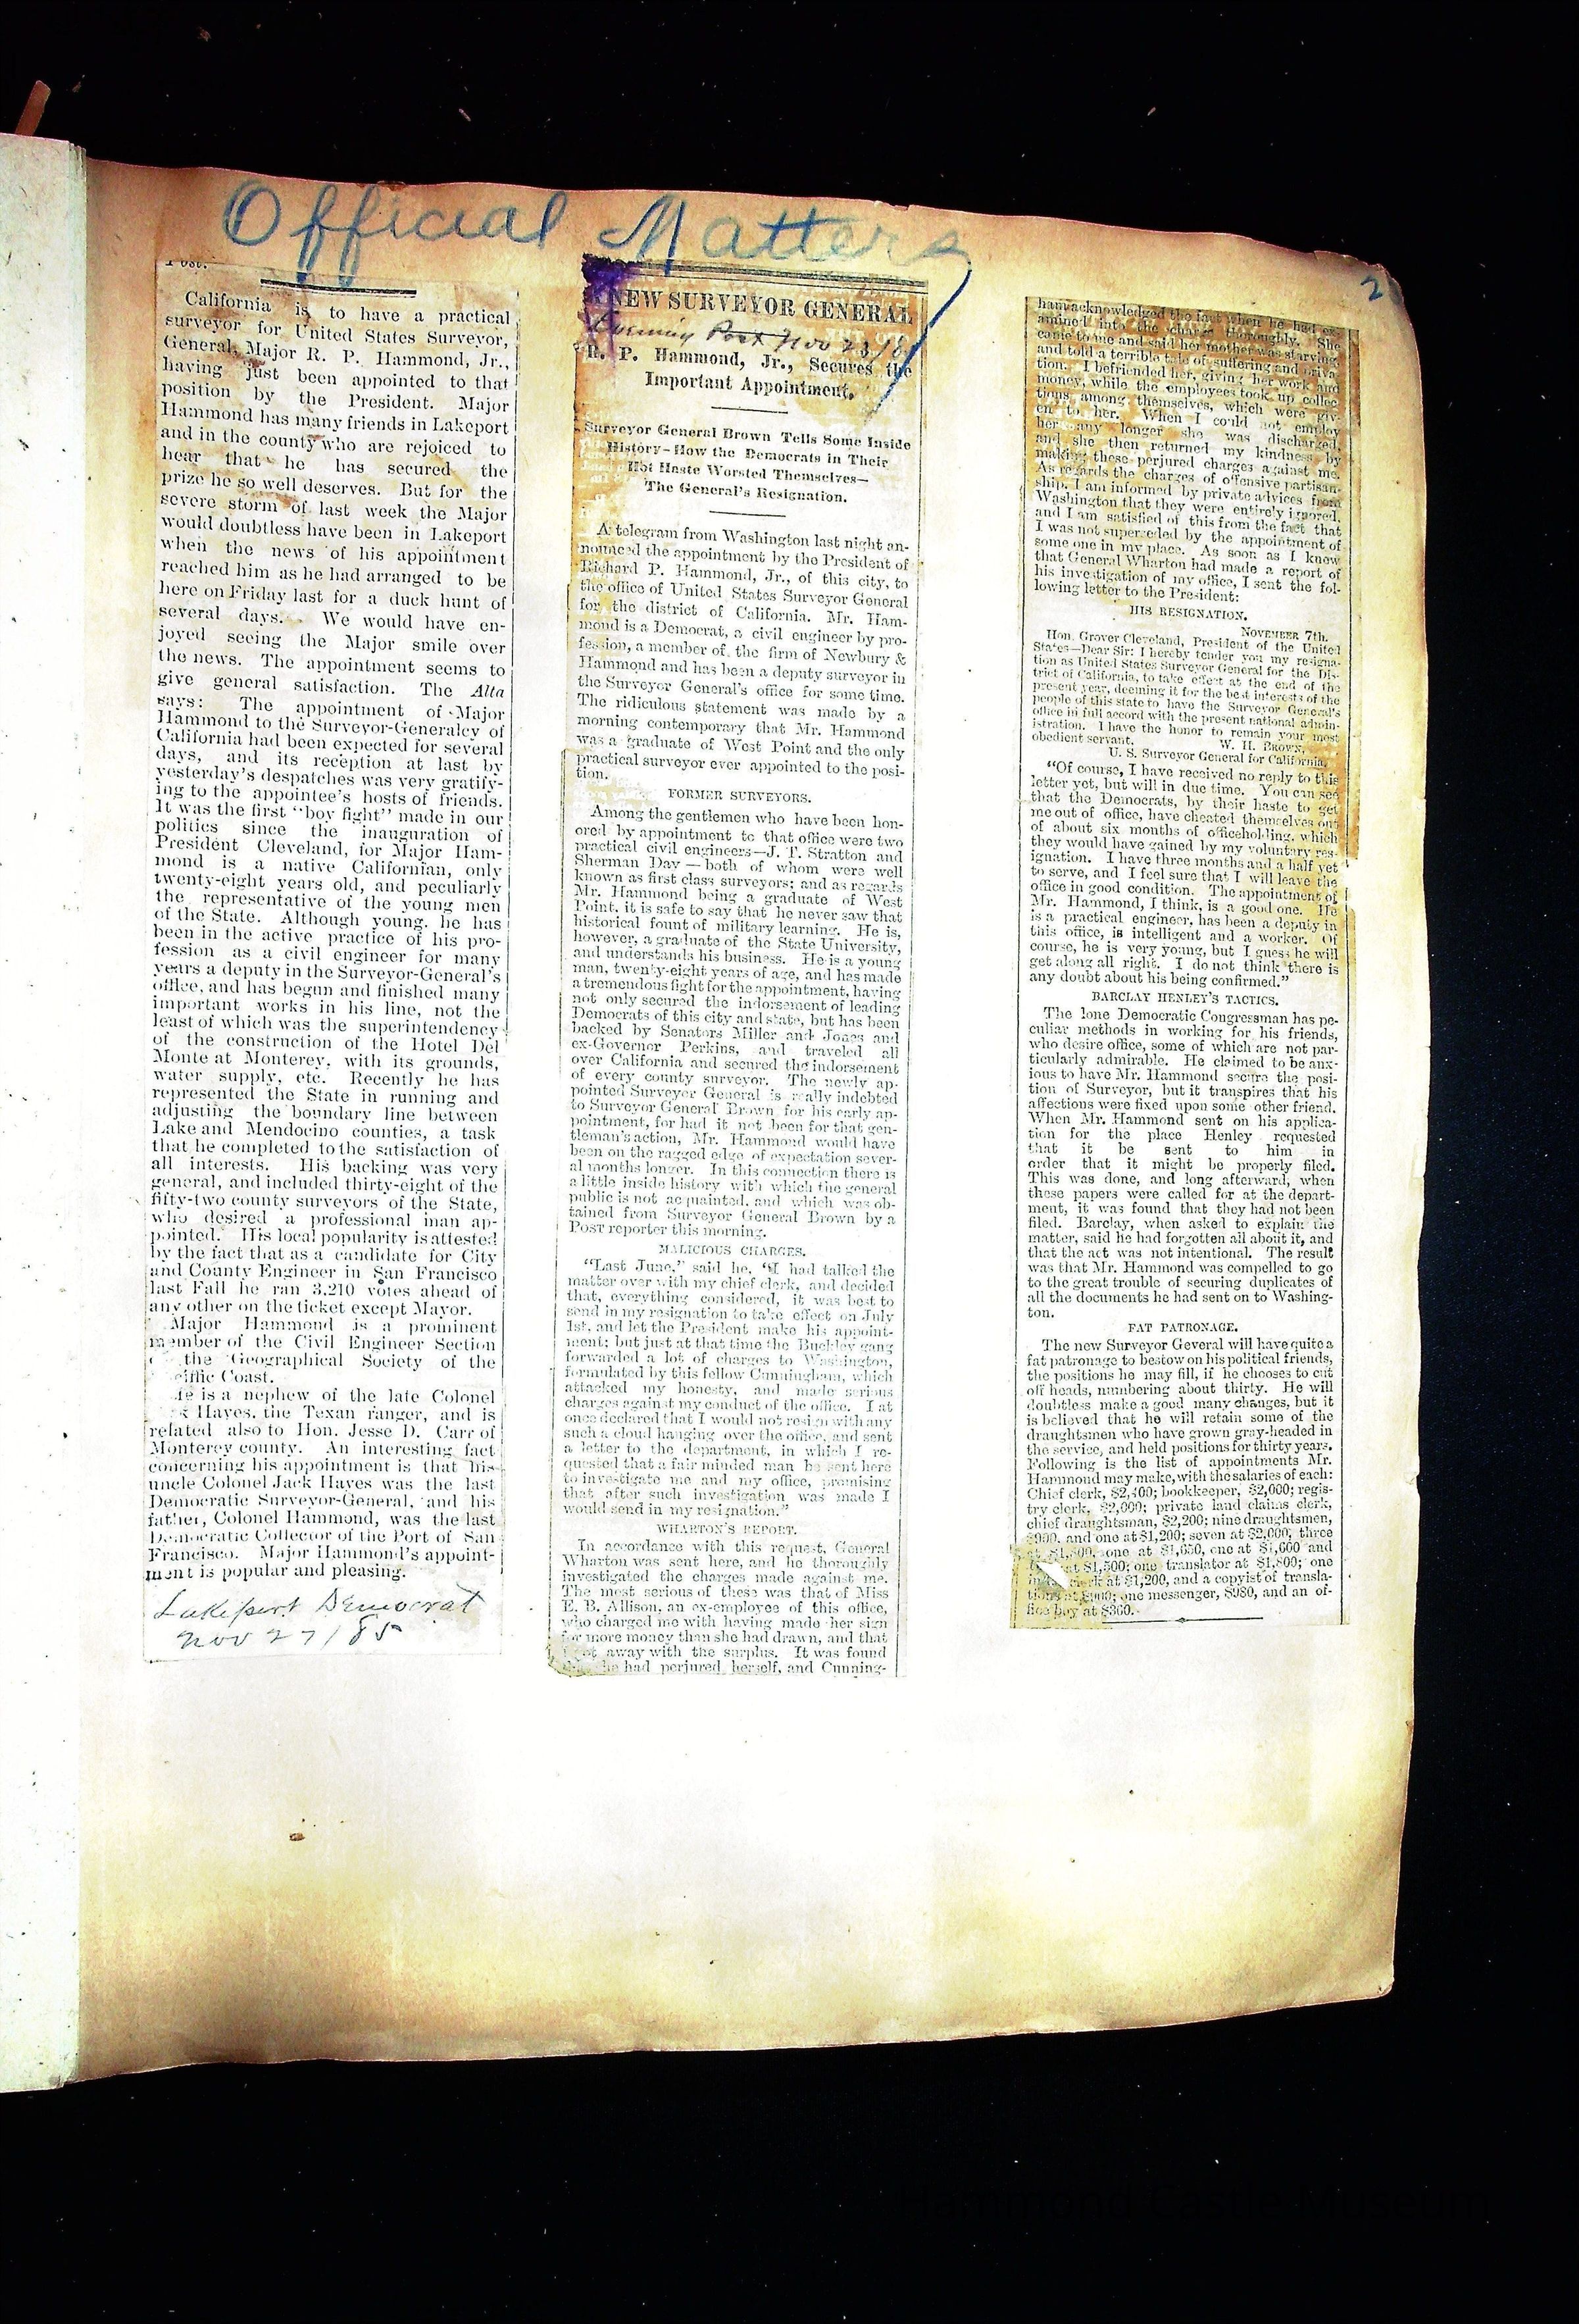 Official Matters
2
Post.
California is to have a practical
surveyor for United States Surveyor,
General, Major R. P. Hammond, Jr.,
having just been appointed to that
position by the President. Major
Hammond has many friends in Lakeport
and in the county who are rejoiced to
hear that he has secured the
prize he so well deserves. But for the
severe storm of last week the Major
would doubtless have been in Lakeport
when the news of his appointment
reached him as he had arranged to be
here on Friday last for a duck hunt of
several days. We would have en-
joyed seeing the Major smile over
the news. The appointment seems to
give general satisfaction. The Alta
says: The appointment of Major
Hammond to the Surveyor-Generalcy of
California had been expected for several
days, and its reception at last by
yesterday's despatches was very gratify-
ing to the appointee's hosts of friends.
It was the first "boy fight" made in our
politics since the inauguration of
President Cleveland, for Major Ham-
mond is a native Californian, only
twenty-eight years old, and peculiarly
the representative of the young men
of the State. Although young, he has
been in the active practice of his pro-
fession as a civil engineer for many
years a deputy in the Surveyor-General's
office, and has begun and finished many
important works in his line, not the
least of which was the superintendency
of the construction of the Hotel Del
Monte at Monterey, with its grounds,
water supply, etc. Recently he has
represented the State in running and
adjusting the boundary line between
Lake and Mendocino counties, a task
that he completed to the satisfaction of
all interests. His backing was very
general, and included thirty-eight of the
fifty-two county surveyors of the State,
who desired a professional man ap-
pointed. His local popularity is attested
by the fact that as a candidate for City
and County Engineer in San Francisco
last Fall he ran 3,210 votes ahead of
any other on the ticket except Mayor.
Major Hammond is a prominent
member of the Civil Engineer Section
the Geographical Society of the
cific Coast.
He is a nephew of the late Colonel
Hayes, the Texan ranger, and is
related also to Hon. Jesse D. Carr of
Monterey county. An interesting fact
concerning his appointment is that his
uncle Colonel Jack Hayes was the last
Democratic Surveyor-General, and his
father, Colonel Hammond, was the last
Democratic Collector of the Port of San
Francisco. Major Hammond's appoint-
ment is popular and pleasing.
Lakeport Democrat
Nov 27/85
NEW SURVEYOR GENERAL
Evening Post Nov 23/8
R. P. Hammond, Jr., Secures the
Important Appointment.
Surveyor General Brown Tells Some Inside
History—How the Democrats in Their
Hot Haste Worsted Themselves—
The General's Resignation.
A telegram from Washington last night an-
nounced the appointment by the President of
Richard P. Hammond, Jr., of this city, to
the office of United States Surveyor General
for the district of California. Mr. Ham-
mond is a Democrat, a civil engineer by pro-
fession, a member of the firm of Newbury &
Hammond and has been a deputy surveyor in
the Surveyor General's office for some time.
The ridiculous statement was made by a
morning contemporary that Mr. Hammond
was a graduate of West Point and the only
practical surveyor ever appointed to the posi-
tion.
FORMER SURVEYORS.
Among the gentlemen who have been hon-
ored by appointment to that office were two
practical civil engineers—J. T. Stratton and
Sherman Day—both of whom were well
known as first class surveyors; and as regards
Mr. Hammond being a graduate of West
Point, it is safe to say that he never saw that
historical fount of military learning. He is,
however, a graduate of the State University,
and understands his business. He is a young
man, twenty-eight years of age, and has made
a tremendous fight for the appointment, having
not only secured the indorsement of leading
Democrats of this city and state, but has been
backed by Senators Miller and Jones and
ex-Governor Perkins, and traveled all
over California and secured the indorsement
of every county surveyor. The newly ap-
pointed Surveyor General is really indebted
to Surveyor General Brown for his early ap-
pointment, for had it not been for that gen-
tleman's action, Mr. Hammond would have
been on the ragged edge of expectation sever-
al months longer. In this connection there is
a little inside history with which the general
public is not acquainted, and which was ob-
tained from Surveyor General Brown by a
POST reporter this morning.
MALICIOUS CHARGES.
"Last June," said he, "I had talked the
matter over with my chief clerk, and decided
that, everything considered, it was best to
send in my resignation to take effect on July
1st, and let the President make his appoint-
ment; but just at that time the Buckley gang
forwarded a lot of charges to Washington,
formulated by this fellow Cunningham, which
attacked my honesty, and made serious
charges against my conduct of the office. I at
once declared that I would not resign with any
such a cloud hanging over the office, and sent
a letter to the department, in which I re-
quested that a fair minded man be sent here
to investigate me and my office, promising
that after such investigation was made I
would send in my resignation."
WHARTON'S REPORT.
In accordance with this request, General
Wharton was sent here, and he thoroughly
investigated the charges made against me.
The most serious of these was that of Miss
E. B. Allison, an ex-employee of this office,
who charged me with having made her sign
for more money than she had drawn, and that
I got away with the surplus. It was found
he had perjured herself, and Cunning-
ham acknowledged the fact when he had ex-
amined into the charge thoroughly. She
came to me and said her mother was starving
and told a terrible tale of suffering and priva-
tion. I befriended her, giving her work and
money, while the employees took up collec-
tions among themselves, which were giv-
en to her. When I could not employ
her any longer she was discharged,
and she then returned my kindness by
making these perjured charges against me.
As regards the charges of offensive partisan-
ship, I am informed by private advices from
Washington that they were entirely ignored,
and I am satisfied of this from the fact that
I was not superceded by the appointment of
some one in my place. As soon as I knew
that General Wharton had made a report of
his investigation of my office, I sent the fol-
lowing letter to the President:
HIS RESIGNATION.
NOVEMBER 7th.
Hon. Grover Cleveland, President of the United
States—Dear Sir: I hereby tender you my resigna-
tion as United States Surveyor General for the Dis-
trict of California, to take effect at the end of the
present year, deeming it for the best interests of the
people of this state to have the Surveyor General's
office in full accord with the present national admin-
istration. I have the honor to remain your most
obedient servant, W. H. BROWN,
U. S. Surveyor General for California.
"Of course, I have received no reply to this
letter yet, but will in due time. You can see
that the Democrats, by their haste to get
me out of office, have cheated themselves out
of about six months of officeholding, which
they would have gained by my voluntary res-
ignation. I have three months and a half yet
to serve, and I feel sure that I will leave the
office in good condition. The appointment of
Mr. Hammond, I think, is a good one. He
is a practical engineer, has been a deputy in
this office, is intelligent and a worker. Of
course, he is very young, but I guess he will
get along all right. I do not think there is
any doubt about his being confirmed."
BARCLAY HENLEY'S TACTICS.
The lone Democratic Congressman has pe-
culiar methods in working for his friends,
who desire office, some of which are not par-
ticularly admirable. He claimed to be anx-
ious to have Mr. Hammond secure the posi-
tion of Surveyor, but it transpires that his
affections were fixed upon some other friend.
When Mr. Hammond sent on his applica-
tion for the place Henley requested
that it be sent to him in
order that it might be properly filed.
This was done, and long afterward, when
these papers were called for at the depart-
ment, it was found that they had not been
filed. Barclay, when asked to explain the
matter, said he had forgotten all about it, and
that the act was not intentional. The result
was that Mr. Hammond was compelled to go
to the great trouble of securing duplicates of
all the documents he had sent on to Washing-
ton.
FAT PATRONAGE.
The new Surveyor Geveral will have quite a
fat patronage to bestow on his political friends,
the positions he may fill, if he chooses to cut
off heads, numbering about thirty. He will
doubtless make a good many changes, but it
is believed that he will retain some of the
draughtsmen who have grown gray-headed in
the service, and held positions for thirty years.
Following is the list of appointments Mr.
Hammond may make, with the salaries of each:
Chief clerk, $2,400; bookkeeper, $2,000; regis-
try clerk, $2,000; private land claims clerk,
chief draughtsman, $2,200; nine draughtsmen,
$900, and one at $1,200; seven at $2,000; three
at $1,800, one at $1,650, one at $1,600 and
at $1,500; one translator at $1,800; one
at $1,200, and a copyist of transla-
tions at $900; one messenger, $980, and an of-
fice boy at $360.
Hammond Castle Museum